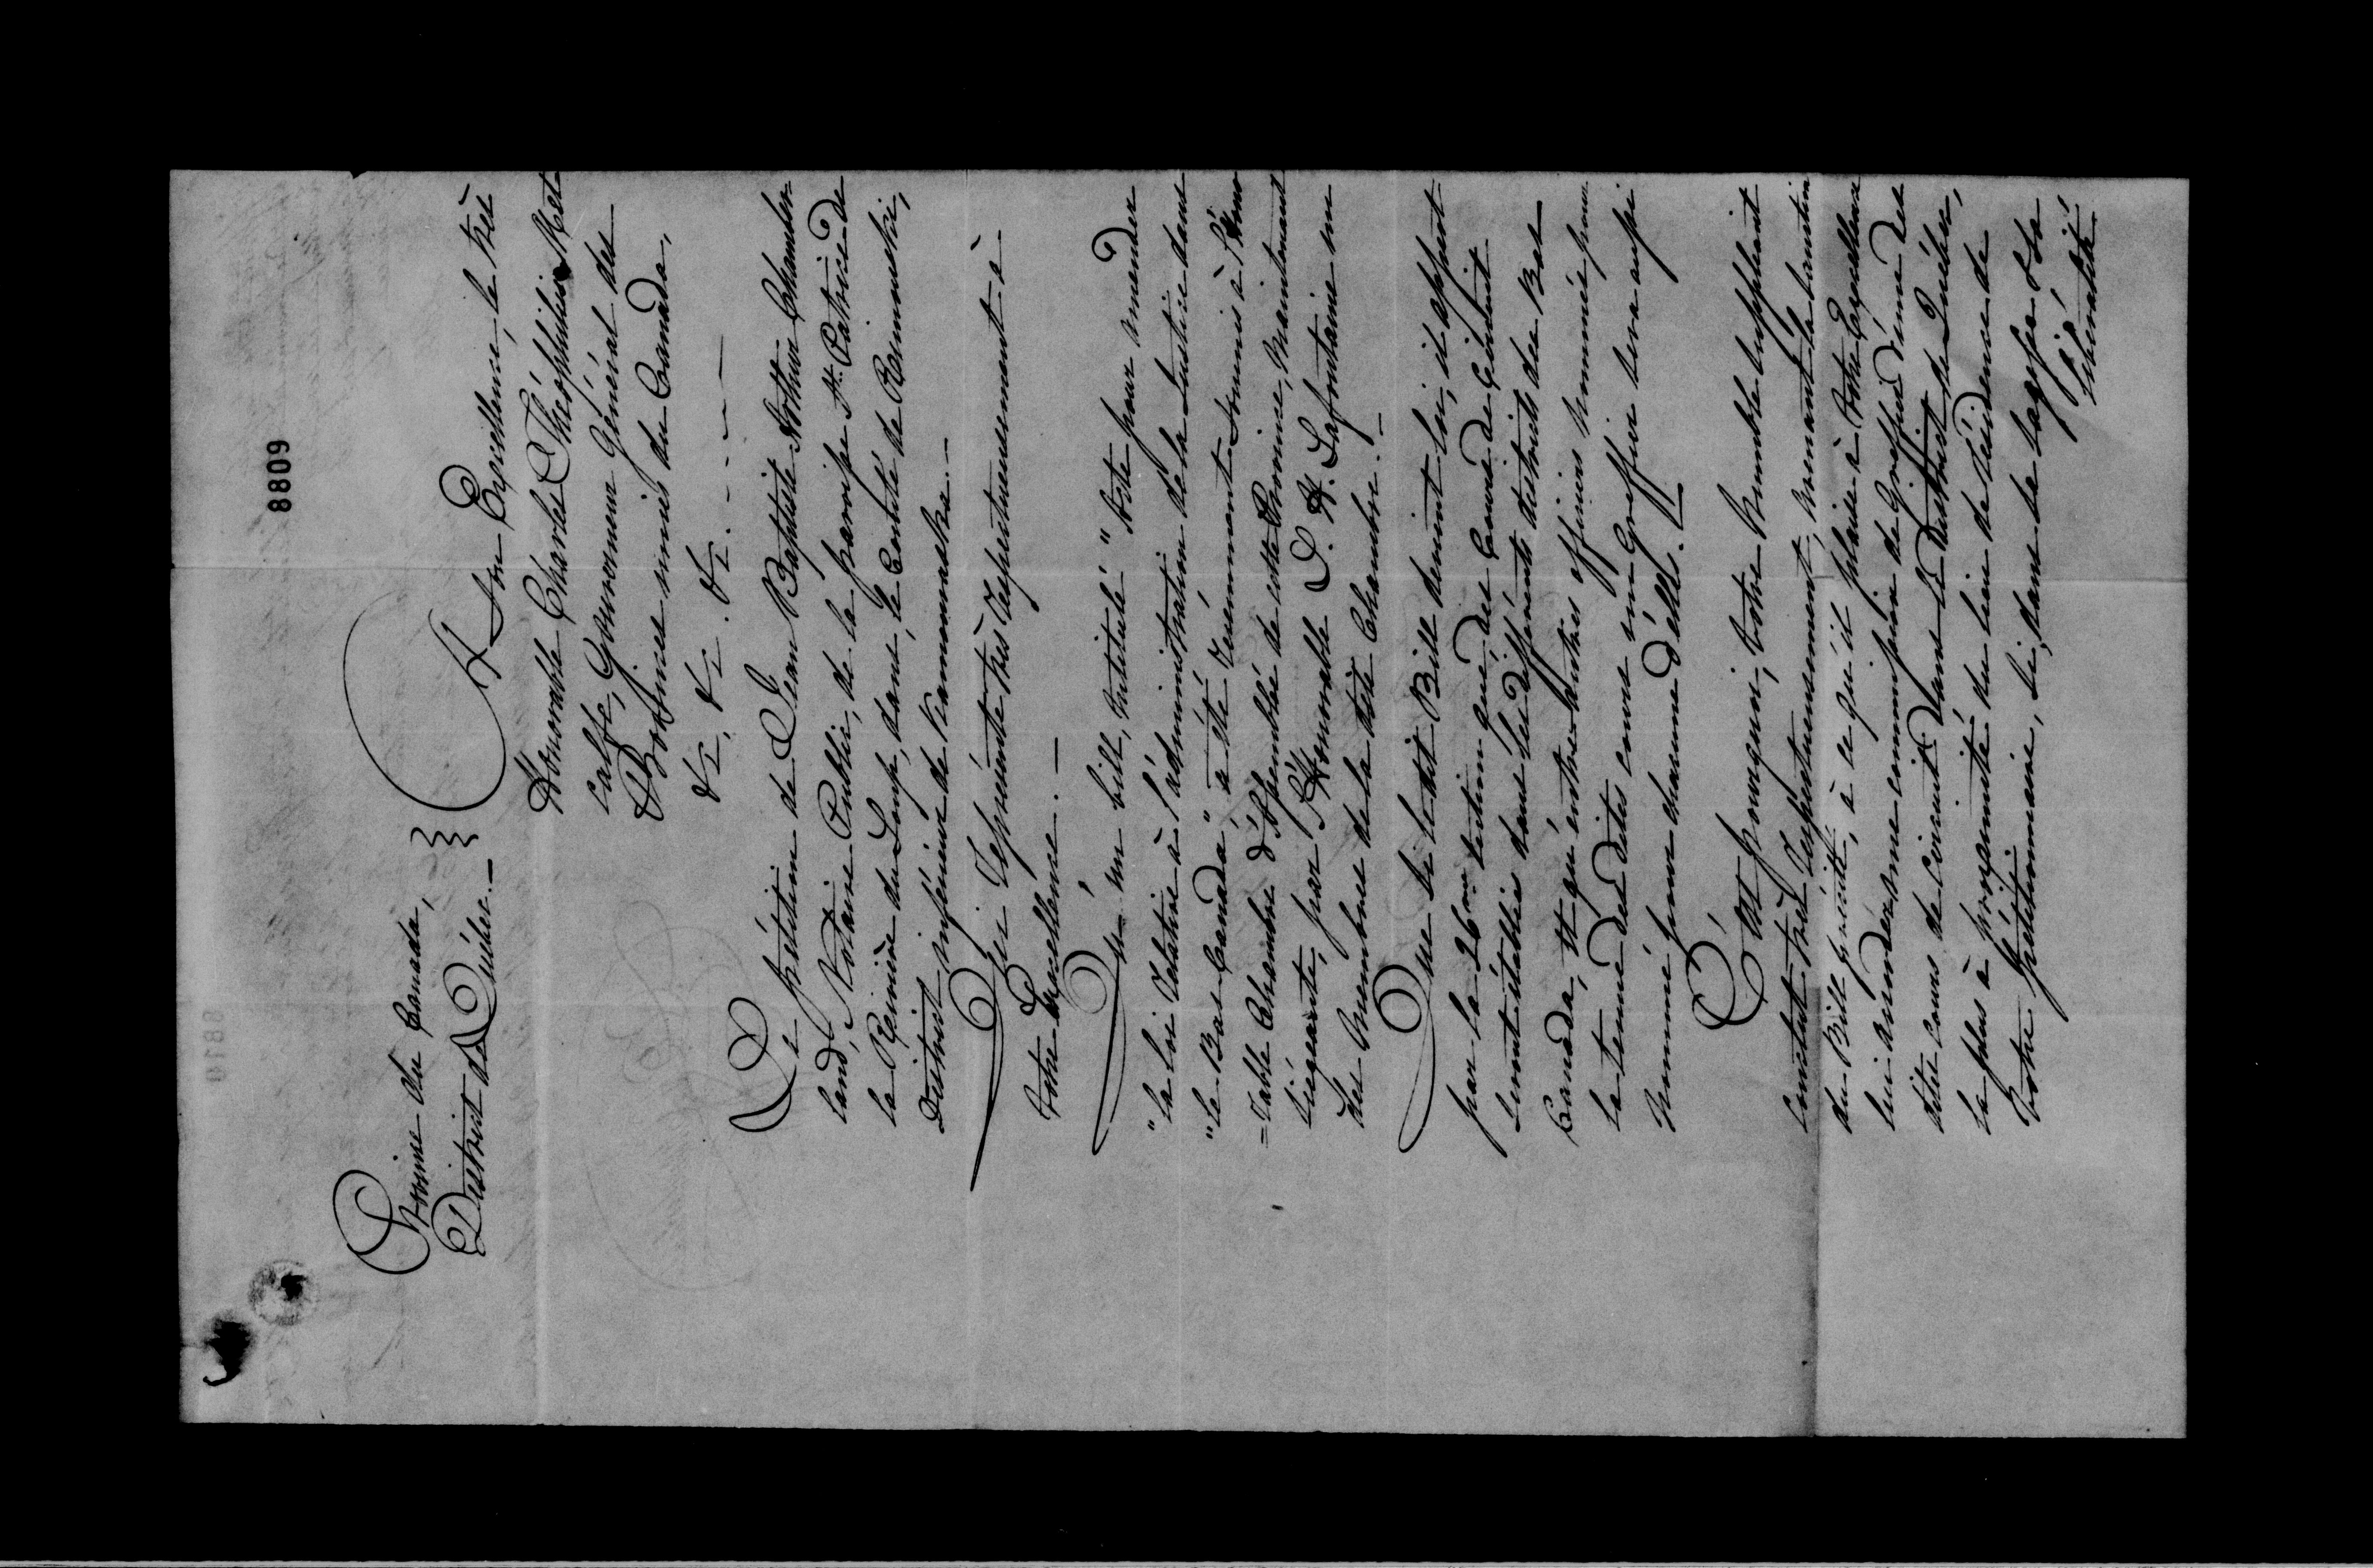 8809
Province du Canada,
District de Québec.—
A Son Excellence, le très
Honorable Charles Théophilus Met-
calfe, Gouverneur Général des
Provinces unies du Canada,
&c, &c, &c. - - - -
La pétition de Jean Baptiste Chamber-
land, Notaire Public, de la paroisse St. Patrice de
la Rivière du Loup, dans le Comté de Rimouski,
District inférieur de Kamouraska.—
Qui Représente très Respectueusement à
Votre Excellence.—
Qu'un bill, Intitulé "Acte pour amender
"la loi Relative à l'administration de la Justice dans
"le Bas Canada" a été Récemment Soumis à l'Hono-
=rable Chambre d'Assemblée de cette Province, Maintenant
Siégeante, par l'Honorable L. H. Lafontaine un
des Membres de la dite Chambre.—
Que si le dit Bill devient loi, il appert
par la 26me Section que, des Cours de Circuit
Seront établies dans les différents districts du Bas
Canada, et qu'entre autres officiers nommés pour
la tenue des dites cours un Greffier sera aussi
Nommé pour chacune d'elle.
C'est pourquoi, Votre humble Suppliant
Conclut très Respectueusement, prenant la Sanction
du Bill précité, à ce qu'il plaise à Votre Excellence
lui accorder une commission de Greffier d'une des
dites Cours de Circuit dans le District de Québec,
la plus à proximité du lieu de Résidence de
Votre pétitionnaire, Si, dans Sa Sagesse & Sa
libéralité
8810